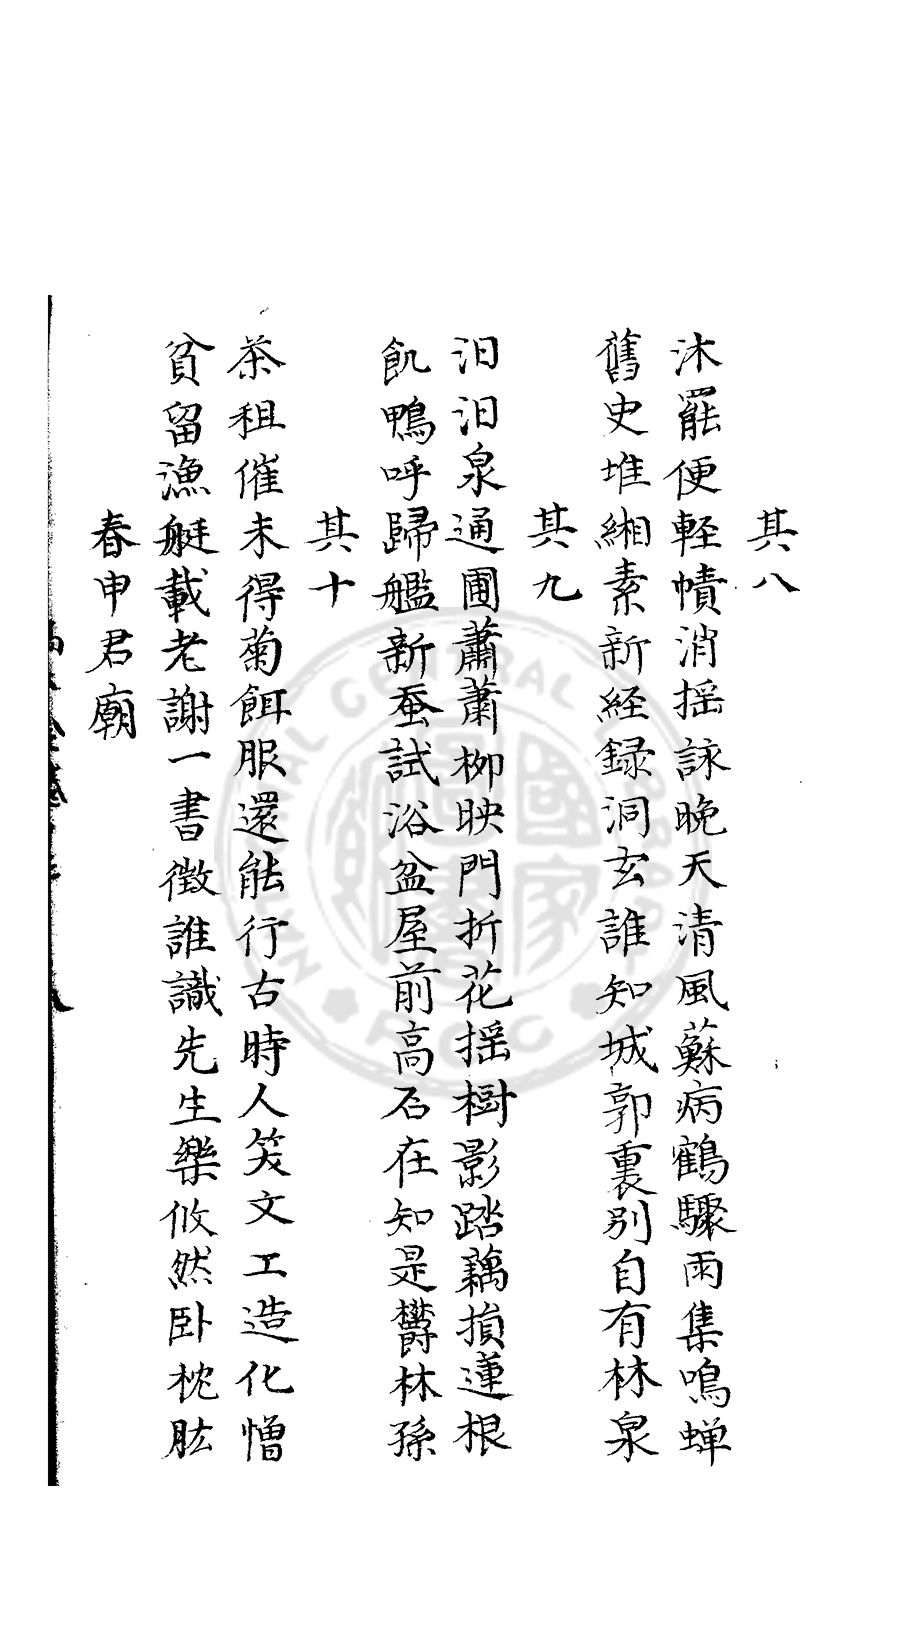 其八
沐罷便輕幘消搖詠晚天清風蘇病鶴驟雨集鳴蟬
舊史堆緗素新経録洞玄誰知城郭裏別自有林泉
其九
汩汩泉通圃蕭蕭柳映門折花搖樹影踏藕損蓮根
飢鴨呼歸艦新蚕試浴盆屋前高石在知是欝林孫
其十
茶租催未得菊餌服還能行古時人笑文工造化憎
貧留漁艇載老謝一書徵誰識先生樂攸然卧枕肱
春申君廟
NATIONAL CENTRAL LIBRARY
ROC
國家圖書館